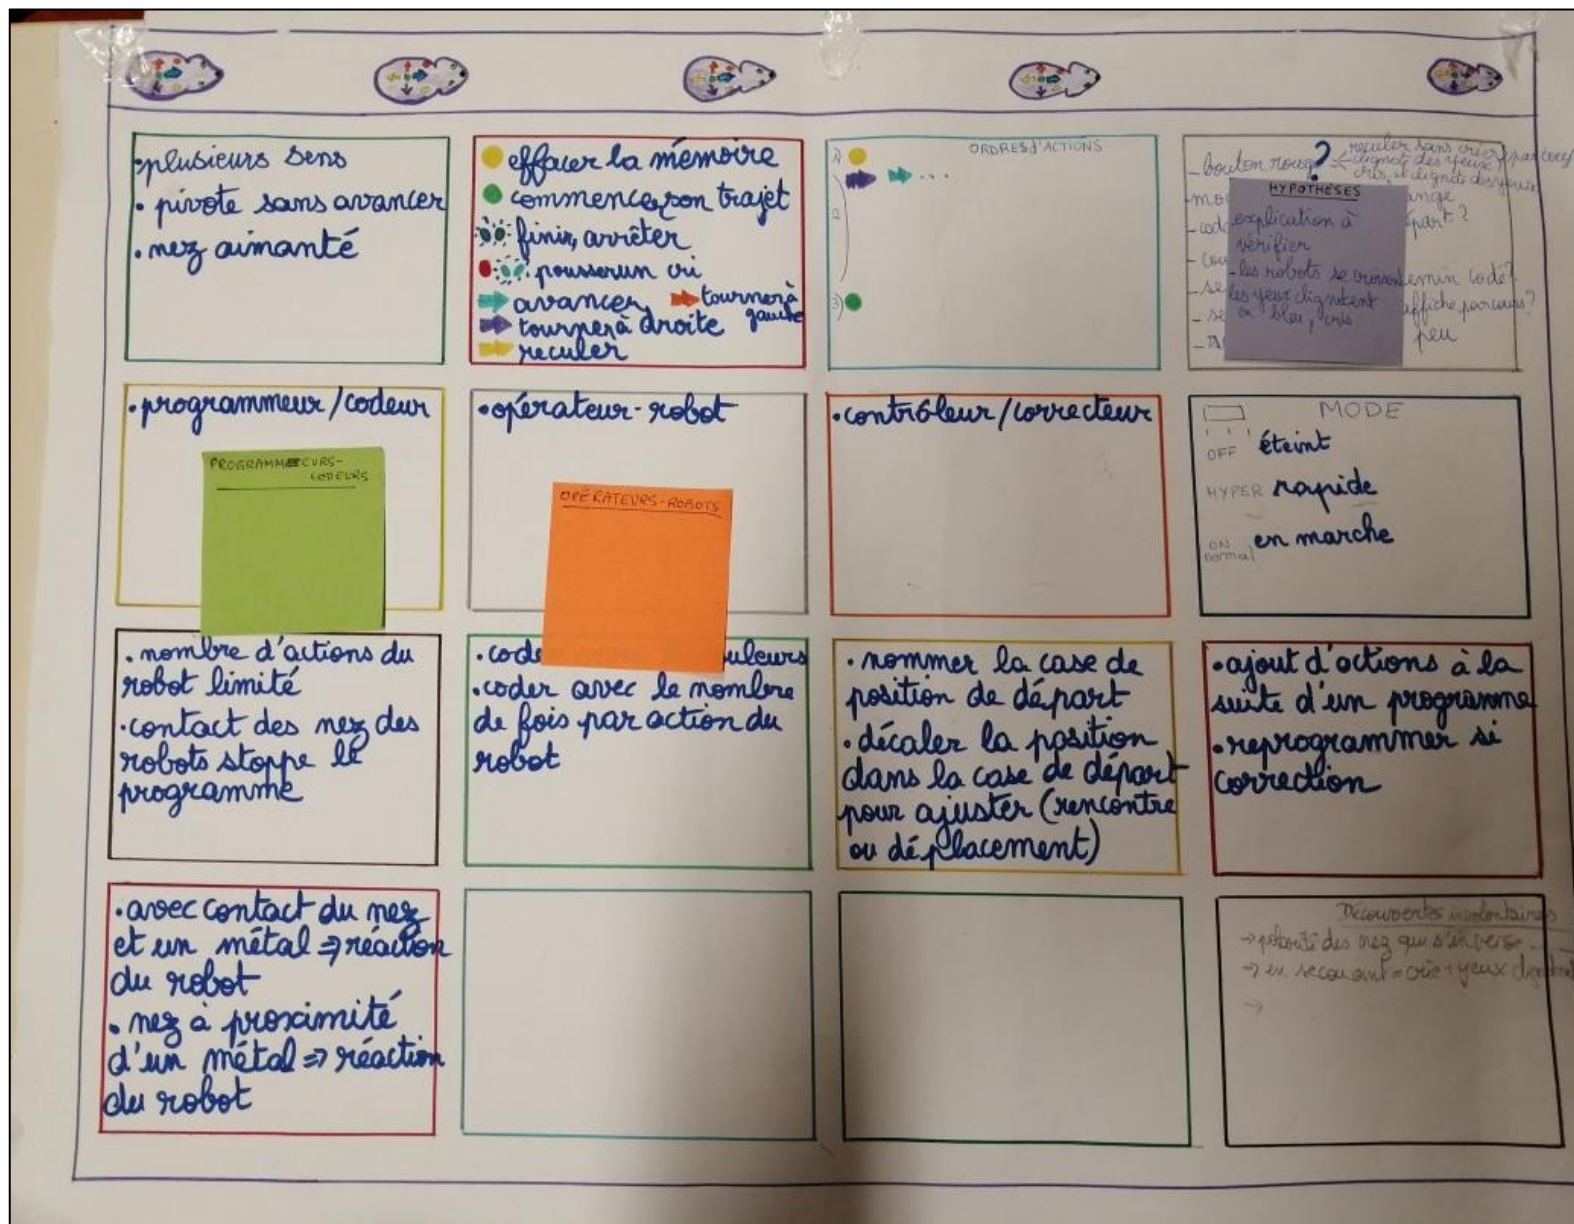 •plusieurs sens
• pivote sans avancer
• nez aimanté
effacer la mémoire
commencer son trajet
finir, arrêter
pousser un cri
avancer tourner à
gauche
tourner à droite
reculer
ORDRES d'ACTIONS
1)
...
2
3)
– bouton rouge ? reculer sans crier
clignote des yeux
cris, et clignote des yeux
ange
part ?
emin codé ?
affiche parcours ?
peu
HYPOTHÈSES
explication à
vérifier
– les robots se croisent
les yeux clignotent
en bleu, cris
•programmeur / codeur
PROGRAMMEURS-
CODEURS
•opérateur-robot
OPÉRATEURS-ROBOTS
•contrôleur / correcteur
MODE
OFF éteint
HYPER rapide
ON
normal en marche
• nombre d'actions du
robot limité
•contact des nez des
robots stoppe le
programme
•code uleurs
•coder avec le nombre
de fois par action du
robot
• nommer la case de
position de départ
• décaler la position
dans la case de départ
pour ajuster (rencontre
ou déplacement)
•ajout d'actions à la
suite d'un programme
•reprogrammer si
correction
•avec contact du nez
et un métal ⇒ réaction
du robot
• nez à proximité
d'un métal ⇒ réaction
du robot
Découvertes involontaires
→ polarité des nez qui s'inverse
→ en secouant = crie + yeux clignotent
→